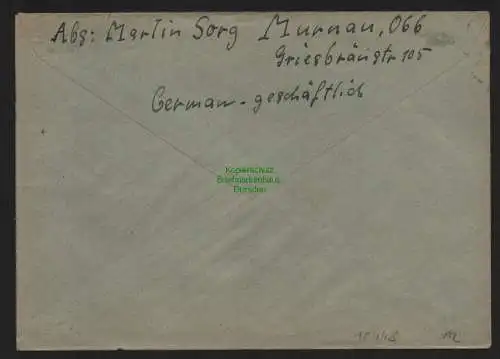 Abs: Martin Sorg Murnau, Obb
Griesbräustr 105
German - geschäftlich
Kopierschutz
Briefmarkenhaus
Dresden